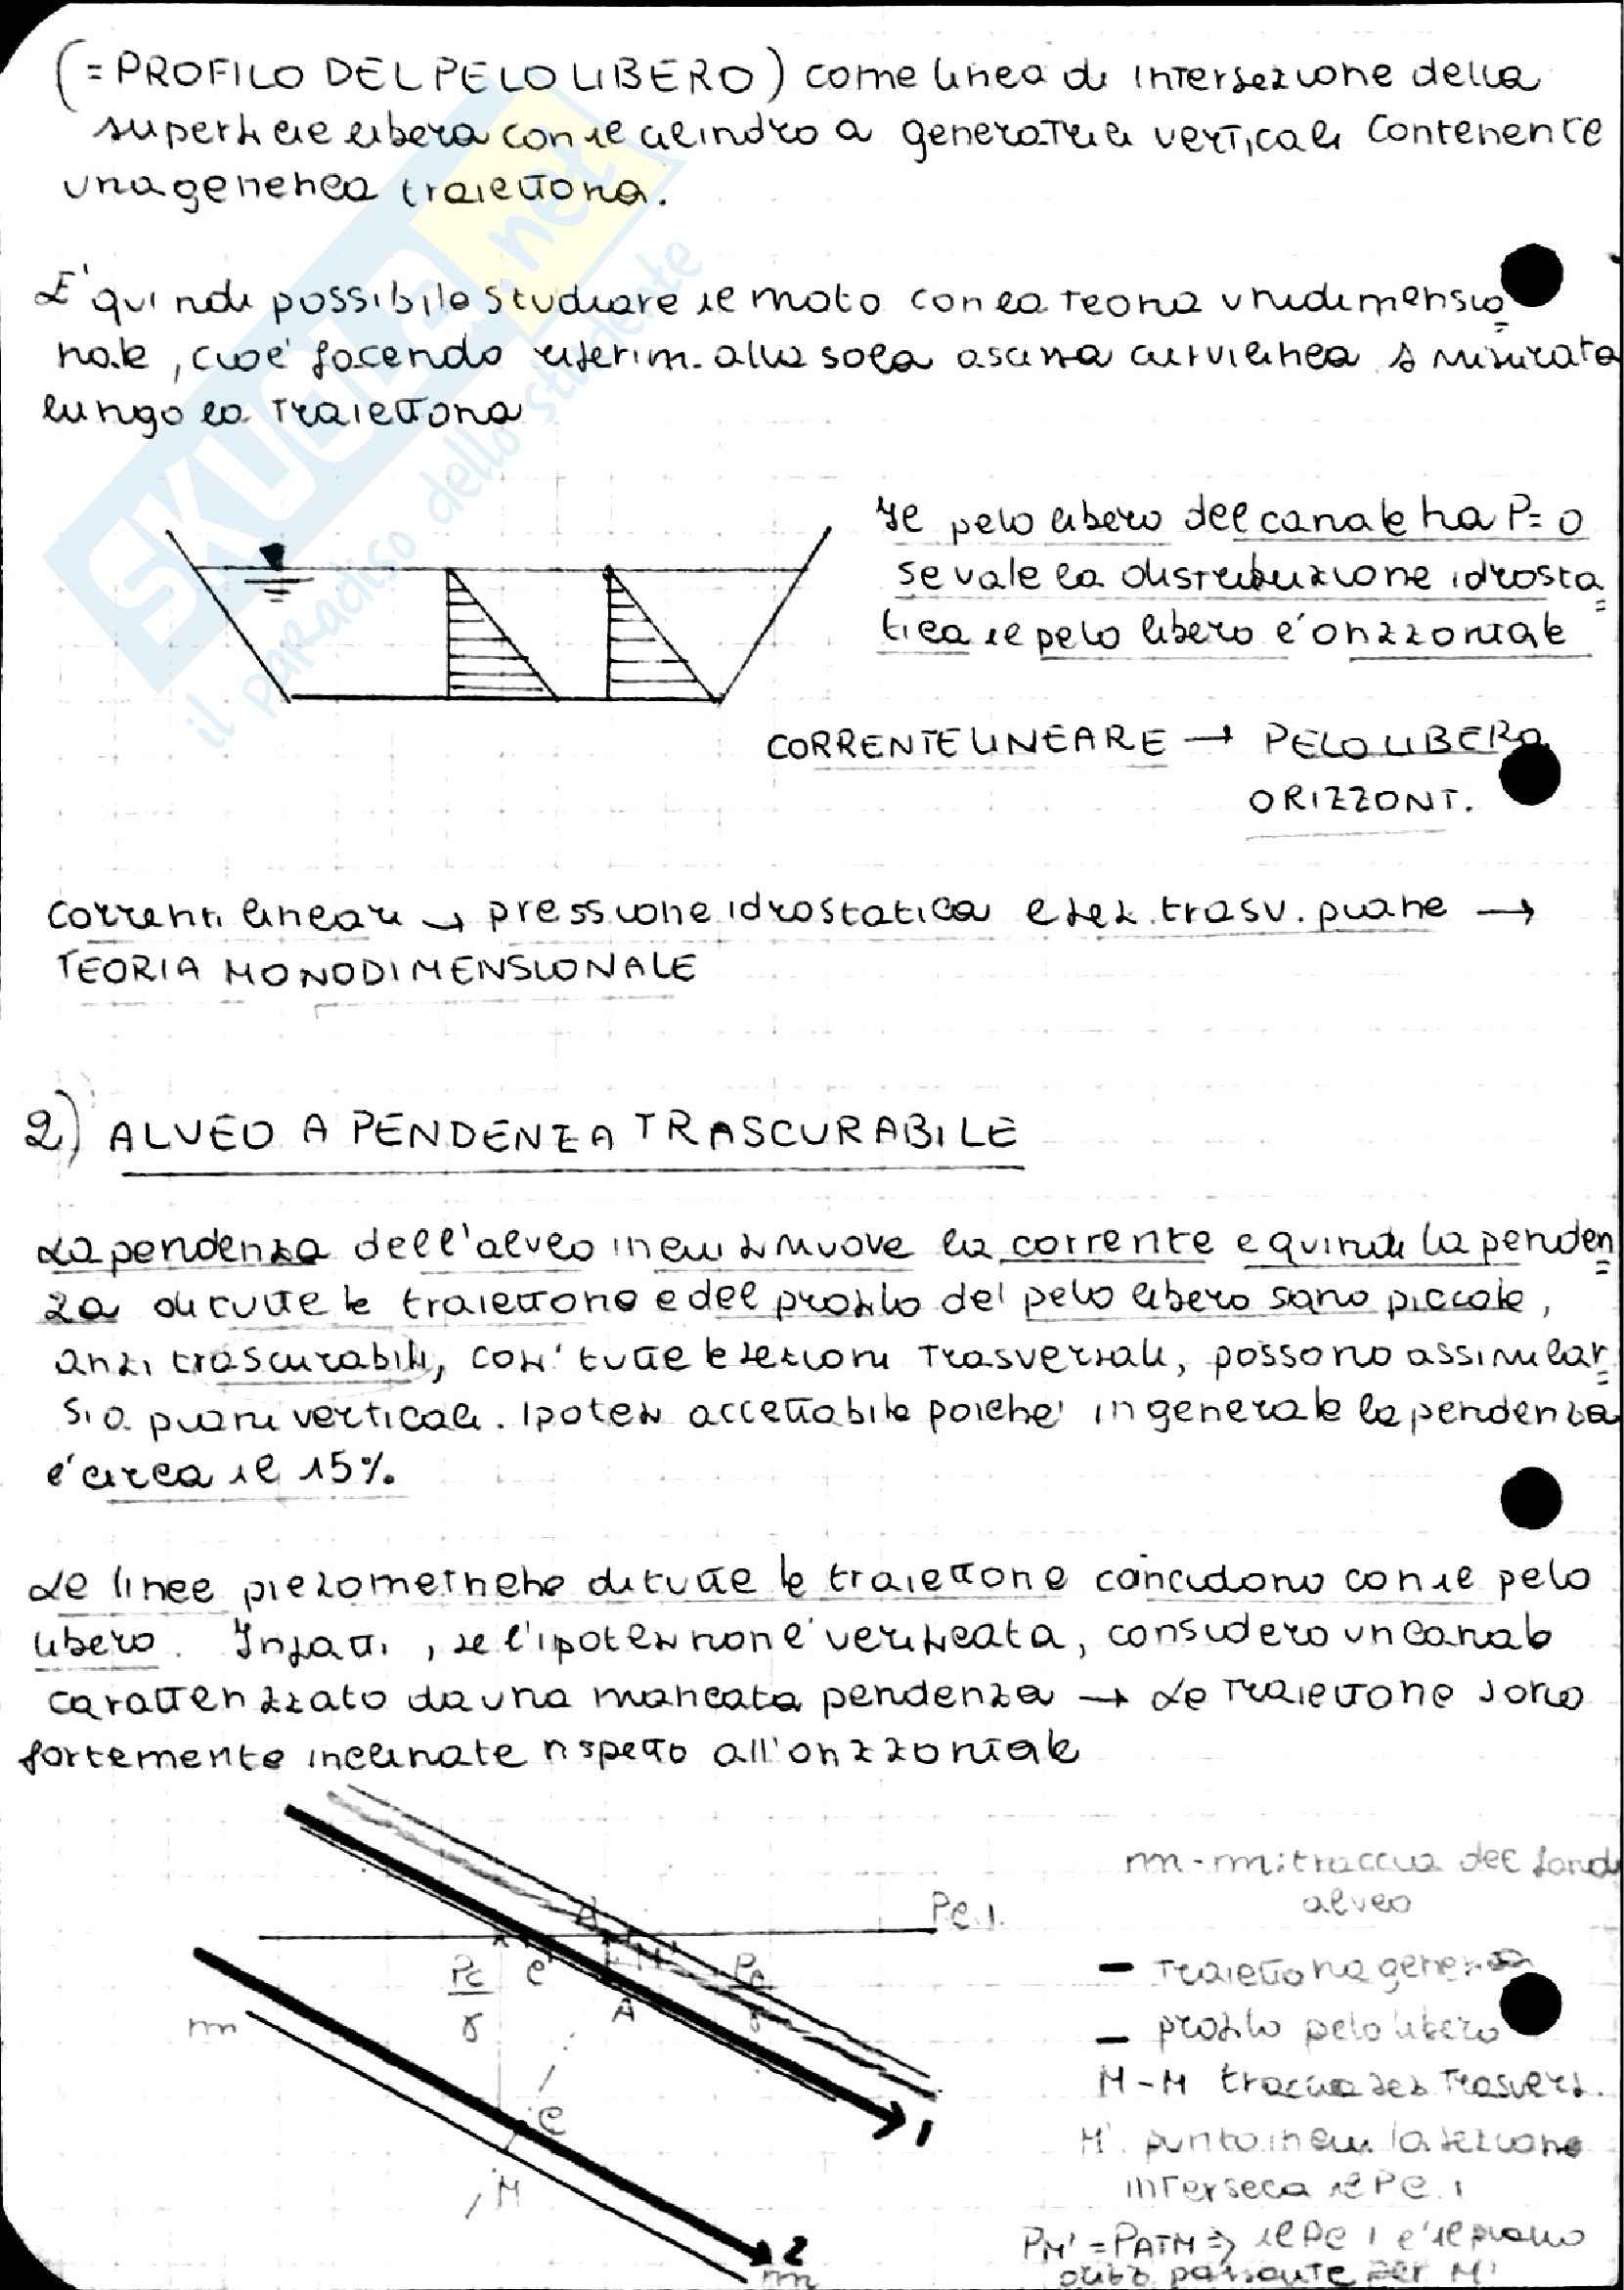 (= PROFILO DEL PELO LIBERO) come linea di intersezione della
superficie libera con il cilindro a generatrici verticali contenente
una generica traiettoria.
E' quindi possibile studiare il moto con la teoria unidimensio=
nale, cioè facendo riferim. alla sola ascissa curvilinea s misurata
lungo la traiettoria
Il pelo libero del canale ha P=0
se vale la distribuzione idrosta=
tica il pelo libero è orizzontale
CORRENTE LINEARE → PELO LIBERO
ORIZZONT.
Correnti lineari → pressione idrostatica e sez. trasv. piane →
TEORIA MONODIMENSIONALE
2) ALVEO A PENDENZA TRASCURABILE
La pendenza dell'alveo in cui si muove la corrente e quindi la penden=
za di tutte le traiettorie e del profilo del pelo libero sono piccole,
anzi trascurabili, così tutte le sezioni trasversali, possono assimilar=
si a piani verticali. Ipotesi accettabile poichè in generale la pendenza
è circa il 15%.
Le linee piezometriche di tutte le traiettorie coincidono con il pelo
libero. Infatti, se l'ipotesi non è verificata, considero un canale
caratterizzato da una mancata pendenza → Le traiettorie sono
fortemente inclinate rispetto all'orizzontale
m-m: traccia del fondo
alveo
P.C.I.
— traiettoria generica
Pc
γ
C'
M'
A
γ
m
— profilo pelo libero
M-M traccia sez trasvers.
1
C
M' punto in cui la sezione
interseca il PC.I
M
PM' = PATM ⇒ il PC I è il piano
2
m
orizz passante per M'
SKUOLA.net
il paradiso dello studente